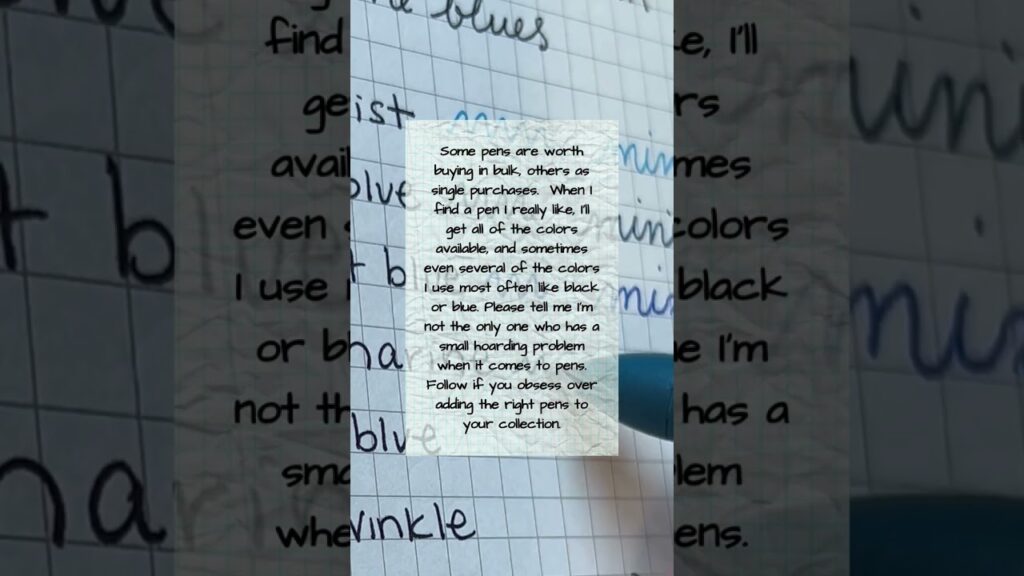 blues
Some pens are worth
buying in bulk, others as
single purchases. When I
find a pen I really like, I'll
get all of the colors
available, and sometimes
even several of the colors
I use most often like black
or blue. Please tell me I'm
not the only one who has a
small hoarding problem
when it comes to pens.
Follow if you obsess over
adding the right pens to
your collection.
blue
blue
blue